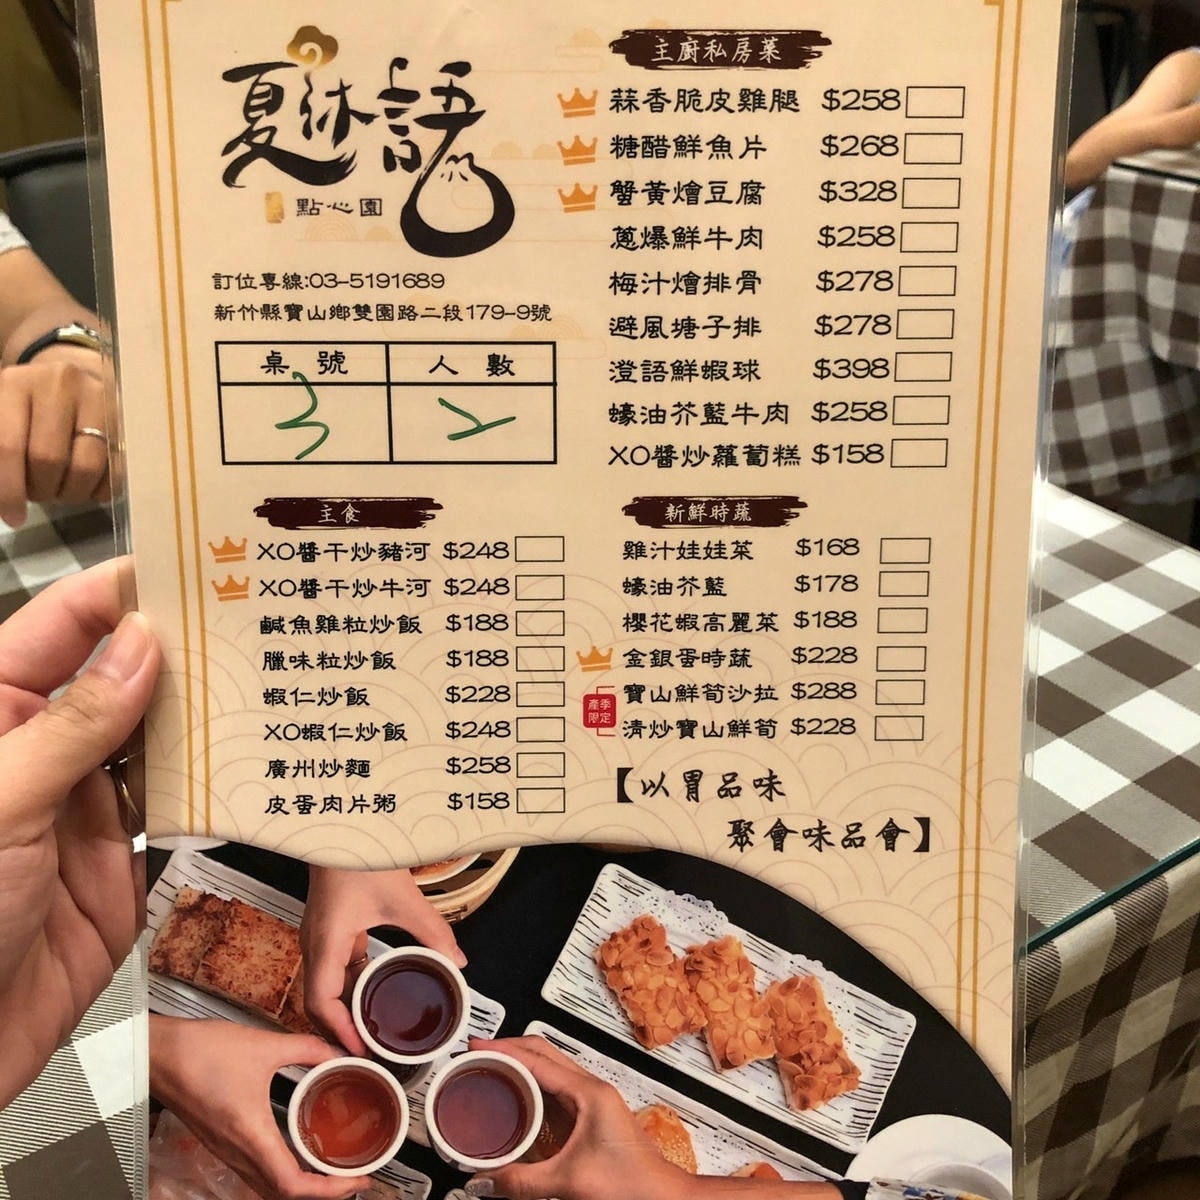 夏沐語
點心園
訂位專線:03-5191689
新竹縣寶山鄉雙園路二段179-9號
桌號 人數
3 2
主廚私房菜
蒜香脆皮雞腿 $258
糖醋鮮魚片 $268
蟹黃燴豆腐 $328
蔥爆鮮牛肉 $258
梅汁燴排骨 $278
避風塘子排 $278
澄語鮮蝦球 $398
蠔油芥藍牛肉 $258
XO醬炒蘿蔔糕 $158
主食
XO醬干炒豬河 $248
XO醬干炒牛河 $248
鹹魚雞粒炒飯 $188
臘味粒炒飯 $188
蝦仁炒飯 $228
XO蝦仁炒飯 $248
廣州炒麵 $258
皮蛋肉片粥 $158
新鮮時蔬
雞汁娃娃菜 $168
蠔油芥藍 $178
櫻花蝦高麗菜 $188
金銀蛋時蔬 $228
產季限定
寶山鮮筍沙拉 $288
清炒寶山鮮筍 $228
【以胃品味
聚會味品會】